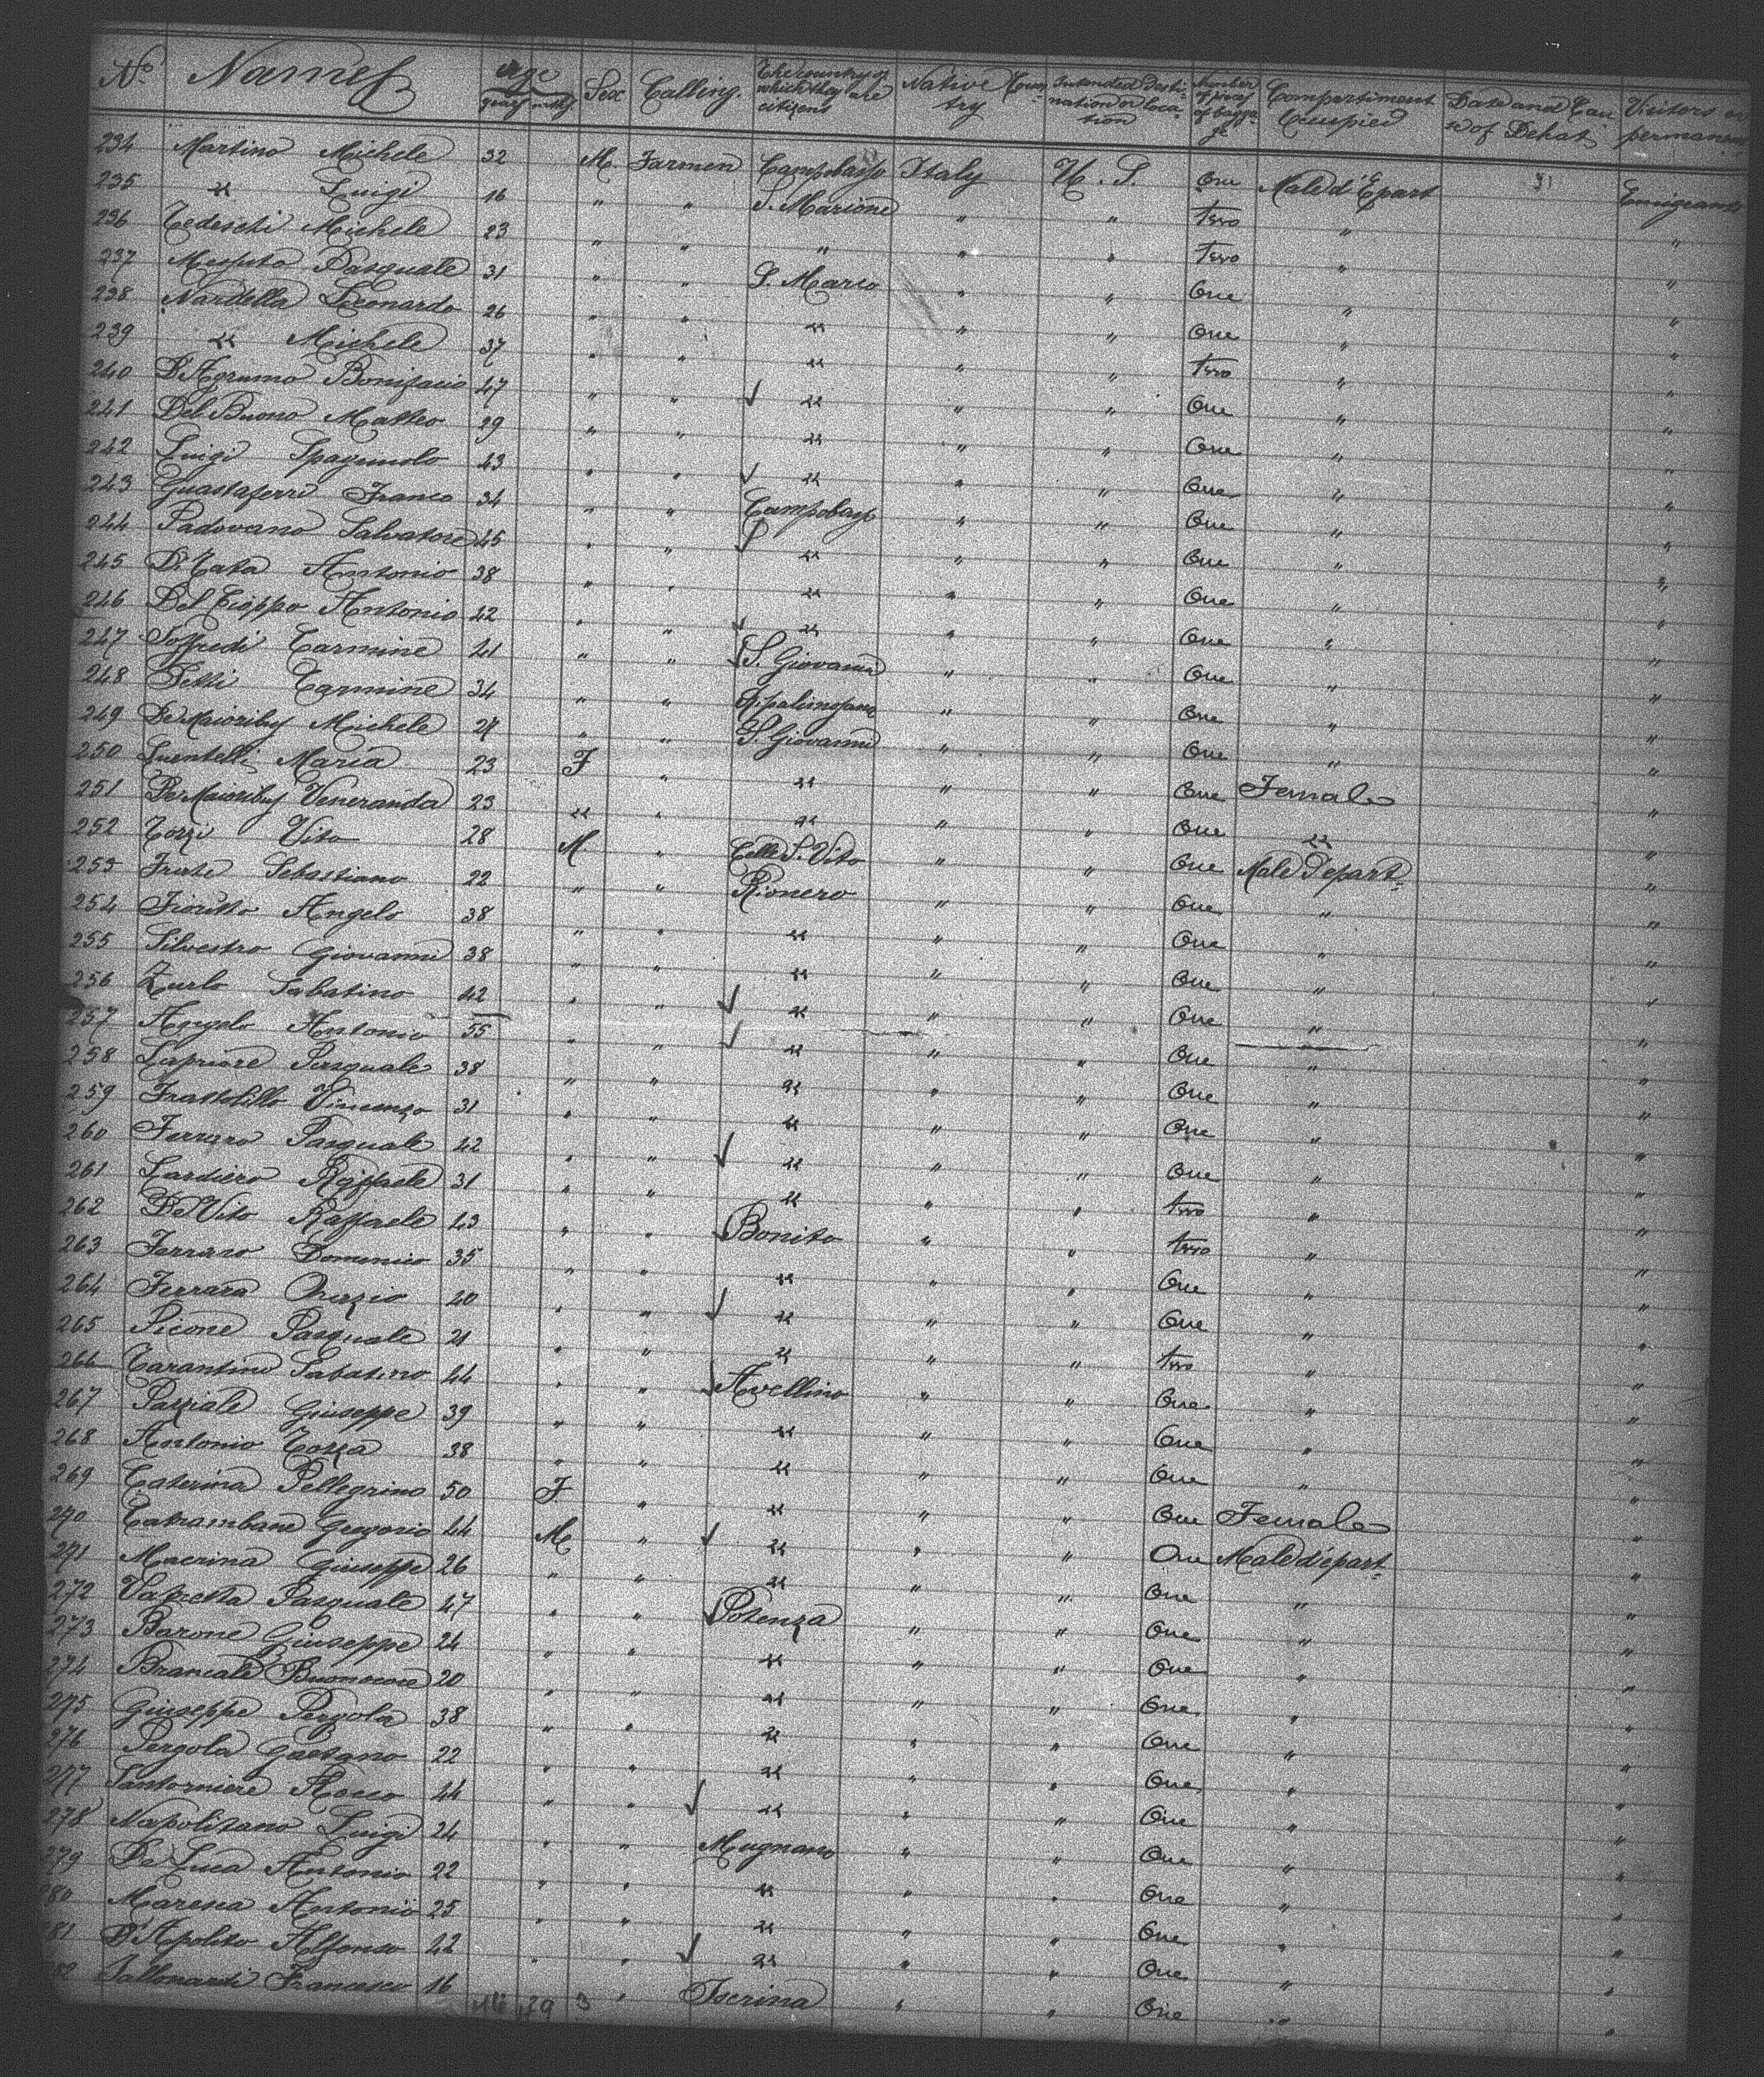 No Names Age years mths Sex Calling. The country of which they are citizens Native Country Intended Destination or location Number of pieces of baggage Compartiment Occupied Date and Cause of Dehat Visitors or permanent
234 Martino Michele 32 M Farmen Campobasso Italy U. S. One Male d'Epart Emigrants
235 " Luigi 16 " " S. Marione " " Two " "
236 Tedeschi Michele 23 " " " " " Two " "
237 Pasquale 31 " " S. Marco " " One " "
238 Nardella Leonardo 26 " " " " " One " "
239 " Michele 37 " " " " " Two " "
240 D'Agrumo Bonifacio 47 " " " " " One " "
241 Del Buono Matteo 29 " " " " " One " "
242 Luigi Spagnuolo 43 " " " " " One " "
243 Guastaferri Franco 34 " " Campobasso " " One " "
244 Padovano Salvatore 45 " " " " " One " "
245 Di Tata Antonio 38 " " " " " One " "
246 Del Cioppo Antonio 42 " " " " " One " "
247 Soffredi Carmine 41 " " S. Giovanni " " One " "
248 Petti Carmine 34 " " " " One " "
249 De Maioribus Michele 24 " " S. Giovanni " " One " "
250 Maria 23 F " " " " One Female "
251 De Maioribus Veneranda 23 " " " " " One " "
252 Tozzi Vito 28 M " Celle S. Vito " " One Male Depart "
253 Frate Sebastiano 22 " " Rionero " " One " "
254 Fioritto Angelo 38 " " " " " One " "
255 Silvestro Giovanni 38 " " " " " One " "
256 Zurlo Sabatino 42 " " " " " One " "
257 Angelo Antonio 55 " " " " " One " "
258 Lapriore Pasquale 38 " " " " " One " "
259 Frattolillo Vincenzo 31 " " " " " One " "
260 Ferraro Pasquale 42 " " " " " One " "
261 Lardiero Raffaele 31 " " " " " two " "
262 De Vito Raffaele 43 " " Bonito " " two " "
263 Ferraro Domenico 35 " " " " " One " "
264 Ferrara Orazio 40 " " " " " One " "
265 Picone Pasquale 21 " " " " " two " "
266 Tarantino Sabatino 44 " " Avellino " " One " "
267 Parziale Giuseppe 39 " " " " " One " "
268 Antonio Tozza 38 " " " " " One " "
269 Caterina Pellegrino 50 F " " " " One Female "
270 Catrambane Gregorio 44 M " " " " One Male d'épart "
271 Macrina Giuseppe 26 " " " " " One " "
272 Pasquale 47 " " Potenza " " One " "
273 Barone Giuseppe 24 " " " " " One " "
274 Brancale Buonocore 20 " " " " " One " "
275 Giuseppe Pergola 38 " " " " " One " "
276 Pergola Gaetano 22 " " " " " One " "
277 Santorniere Rocco 44 " " " " " One " "
278 Napolitano Luigi 24 " " Mugnano " " One " "
279 De Luca Antonio 22 " " " " " One " "
280 Maresca Antonio 25 " " " " " One " "
281 D'Apolito Alfonso 42 " " " " " One " "
282 Sallonardi Francesco 16 " Iserina " " One " "